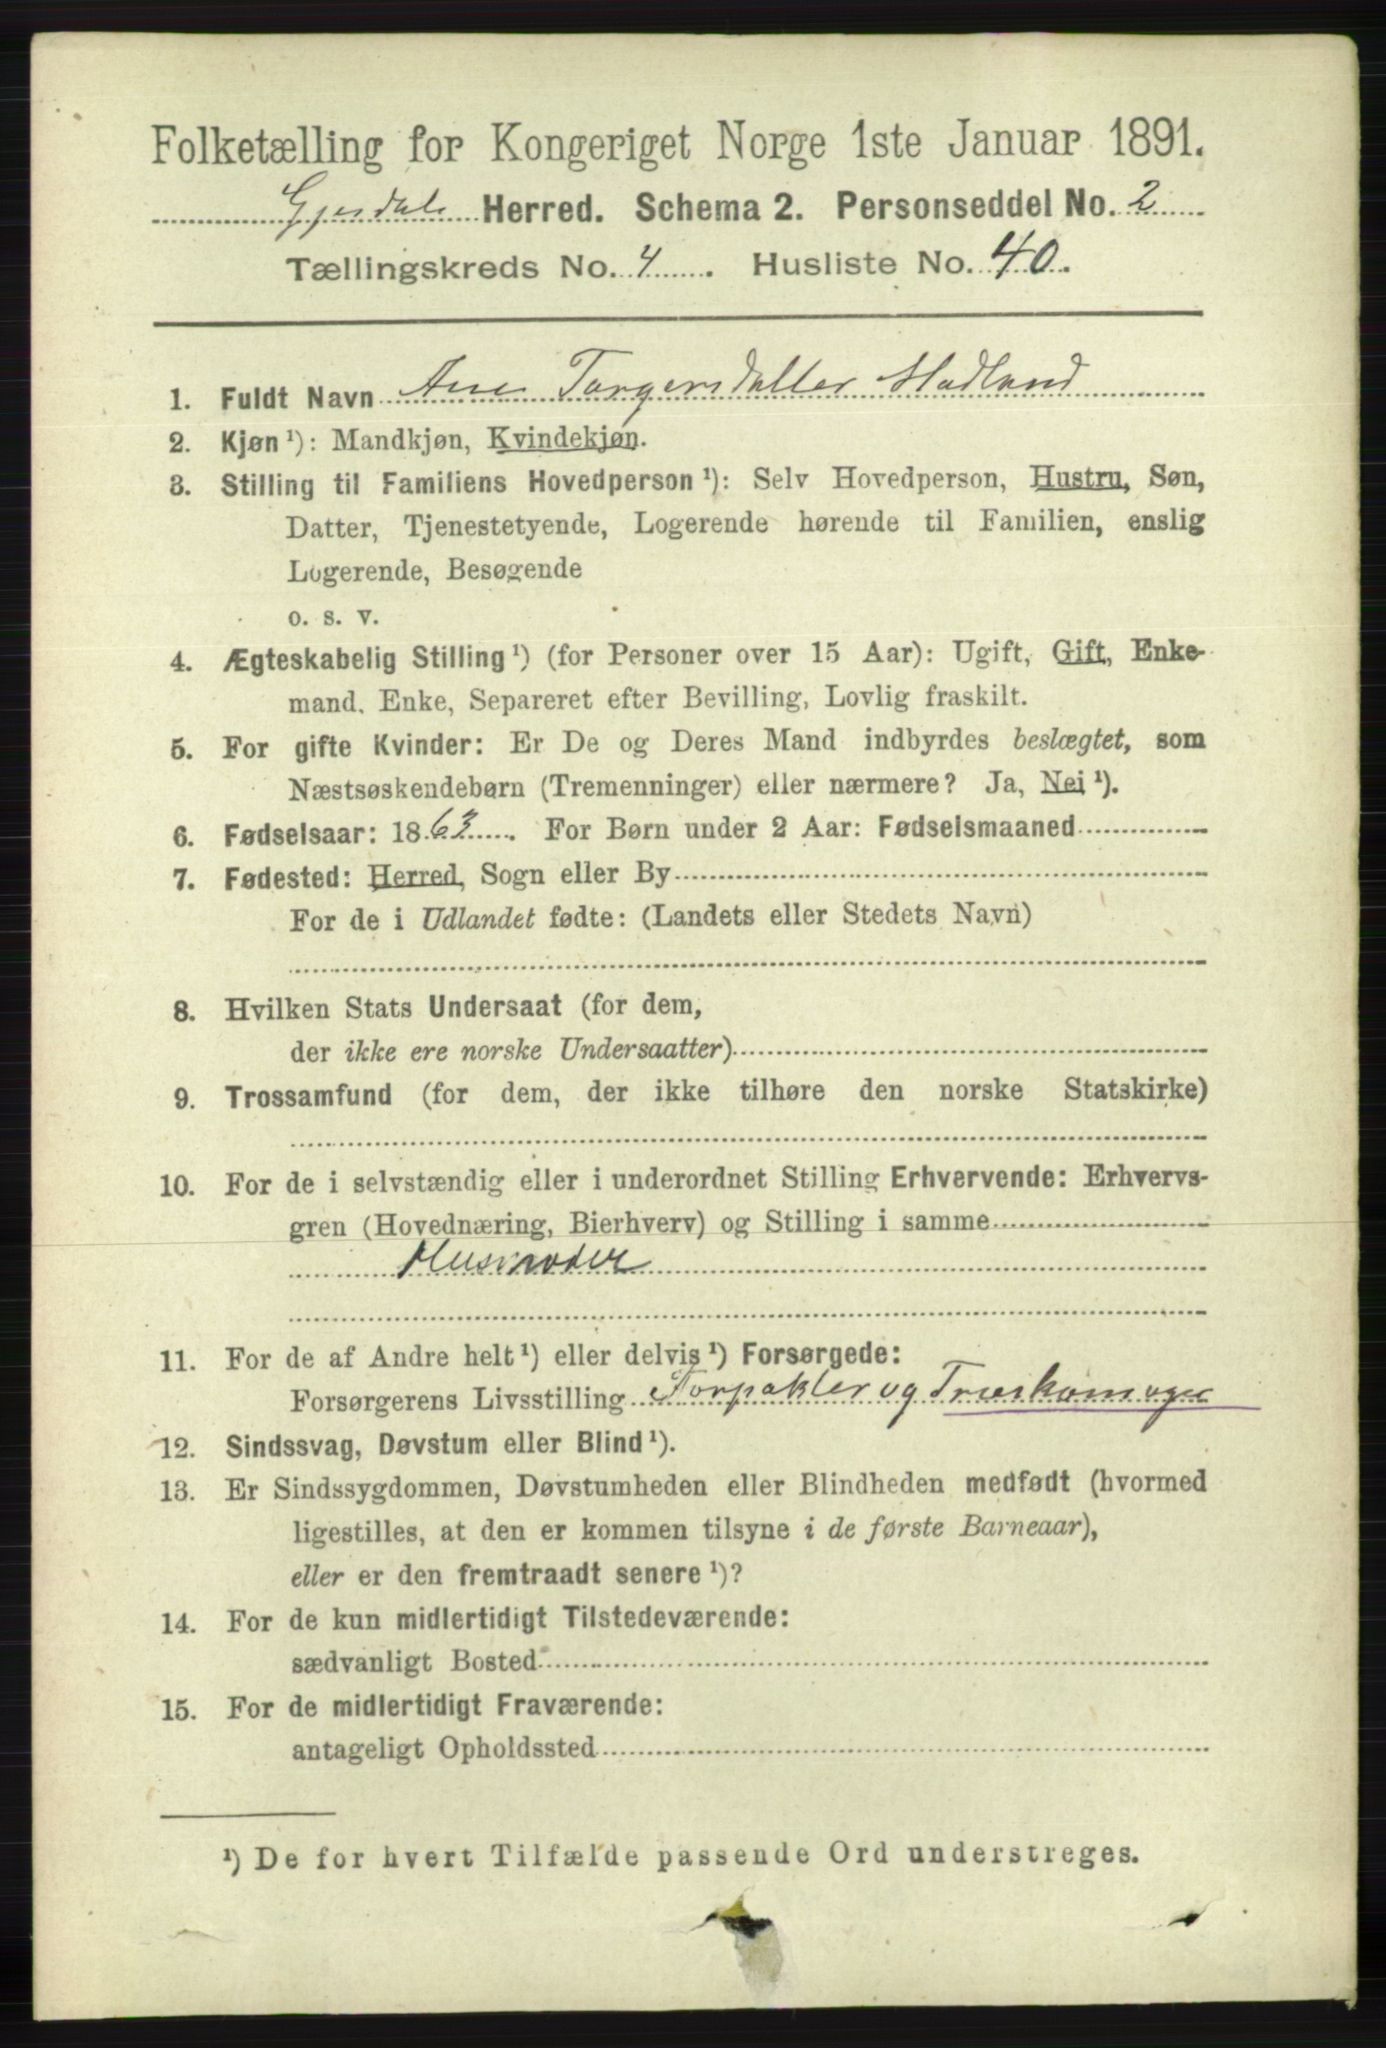 Folketælling for Kongeriget Norge 1ste Januar 1891.
Gjesdal Herred. Schema 2. Personseddel No. 2
Tællingskreds No. 4. Husliste No. 40.
1. Fuldt Navn Ane Torgersdatter Madland
2. Kjøn ¹): Mandkjøn, Kvindekjøn.
3. Stilling til Familiens Hovedperson ¹): Selv Hovedperson, Hustru, Søn,
Datter, Tjenestetyende, Logerende hørende til Familien, enslig
Logerende, Besøgende
o. s. v.
4. Ægteskabelig Stilling ¹) (for Personer over 15 Aar): Ugift, Gift, Enke-
mand, Enke, Separeret efter Bevilling, Lovlig fraskilt.
5. For gifte Kvinder: Er De og Deres Mand indbyrdes beslægtet, som
Næstsøskendebørn (Tremenninger) eller nærmere? Ja, Nei ¹).
6. Fødselsaar: 1863. For Børn under 2 Aar: Fødselsmaaned
7. Fødested: Herred, Sogn eller By
For de i Udlandet fødte: (Landets eller Stedets Navn)
8. Hvilken Stats Undersaat (for dem,
der ikke ere norske Undersaatter)
9. Trossamfund (for dem, der ikke tilhøre den norske Statskirke)
10. For de i selvstændig eller i underordnet Stilling Erhvervende: Erhvervs-
gren (Hovednæring, Bierhverv) og Stilling i samme
Husmoder
11. For de af Andre helt ¹) eller delvis ¹) Forsørgede:
Forsørgerens Livsstilling Forpakter og Træskomager
12. Sindssvag, Døvstum eller Blind ¹).
13. Er Sindssygdommen, Døvstumheden eller Blindheden medfødt (hvormed
ligestilles, at den er kommen tilsyne i de første Barneaar),
eller er den fremtraadt senere ¹)?
14. For de kun midlertidigt Tilstedeværende:
sædvanligt Bosted
15. For de midlertidigt Fraværende:
antageligt Opholdssted
¹) De for hvert Tilfælde passende Ord understreges.